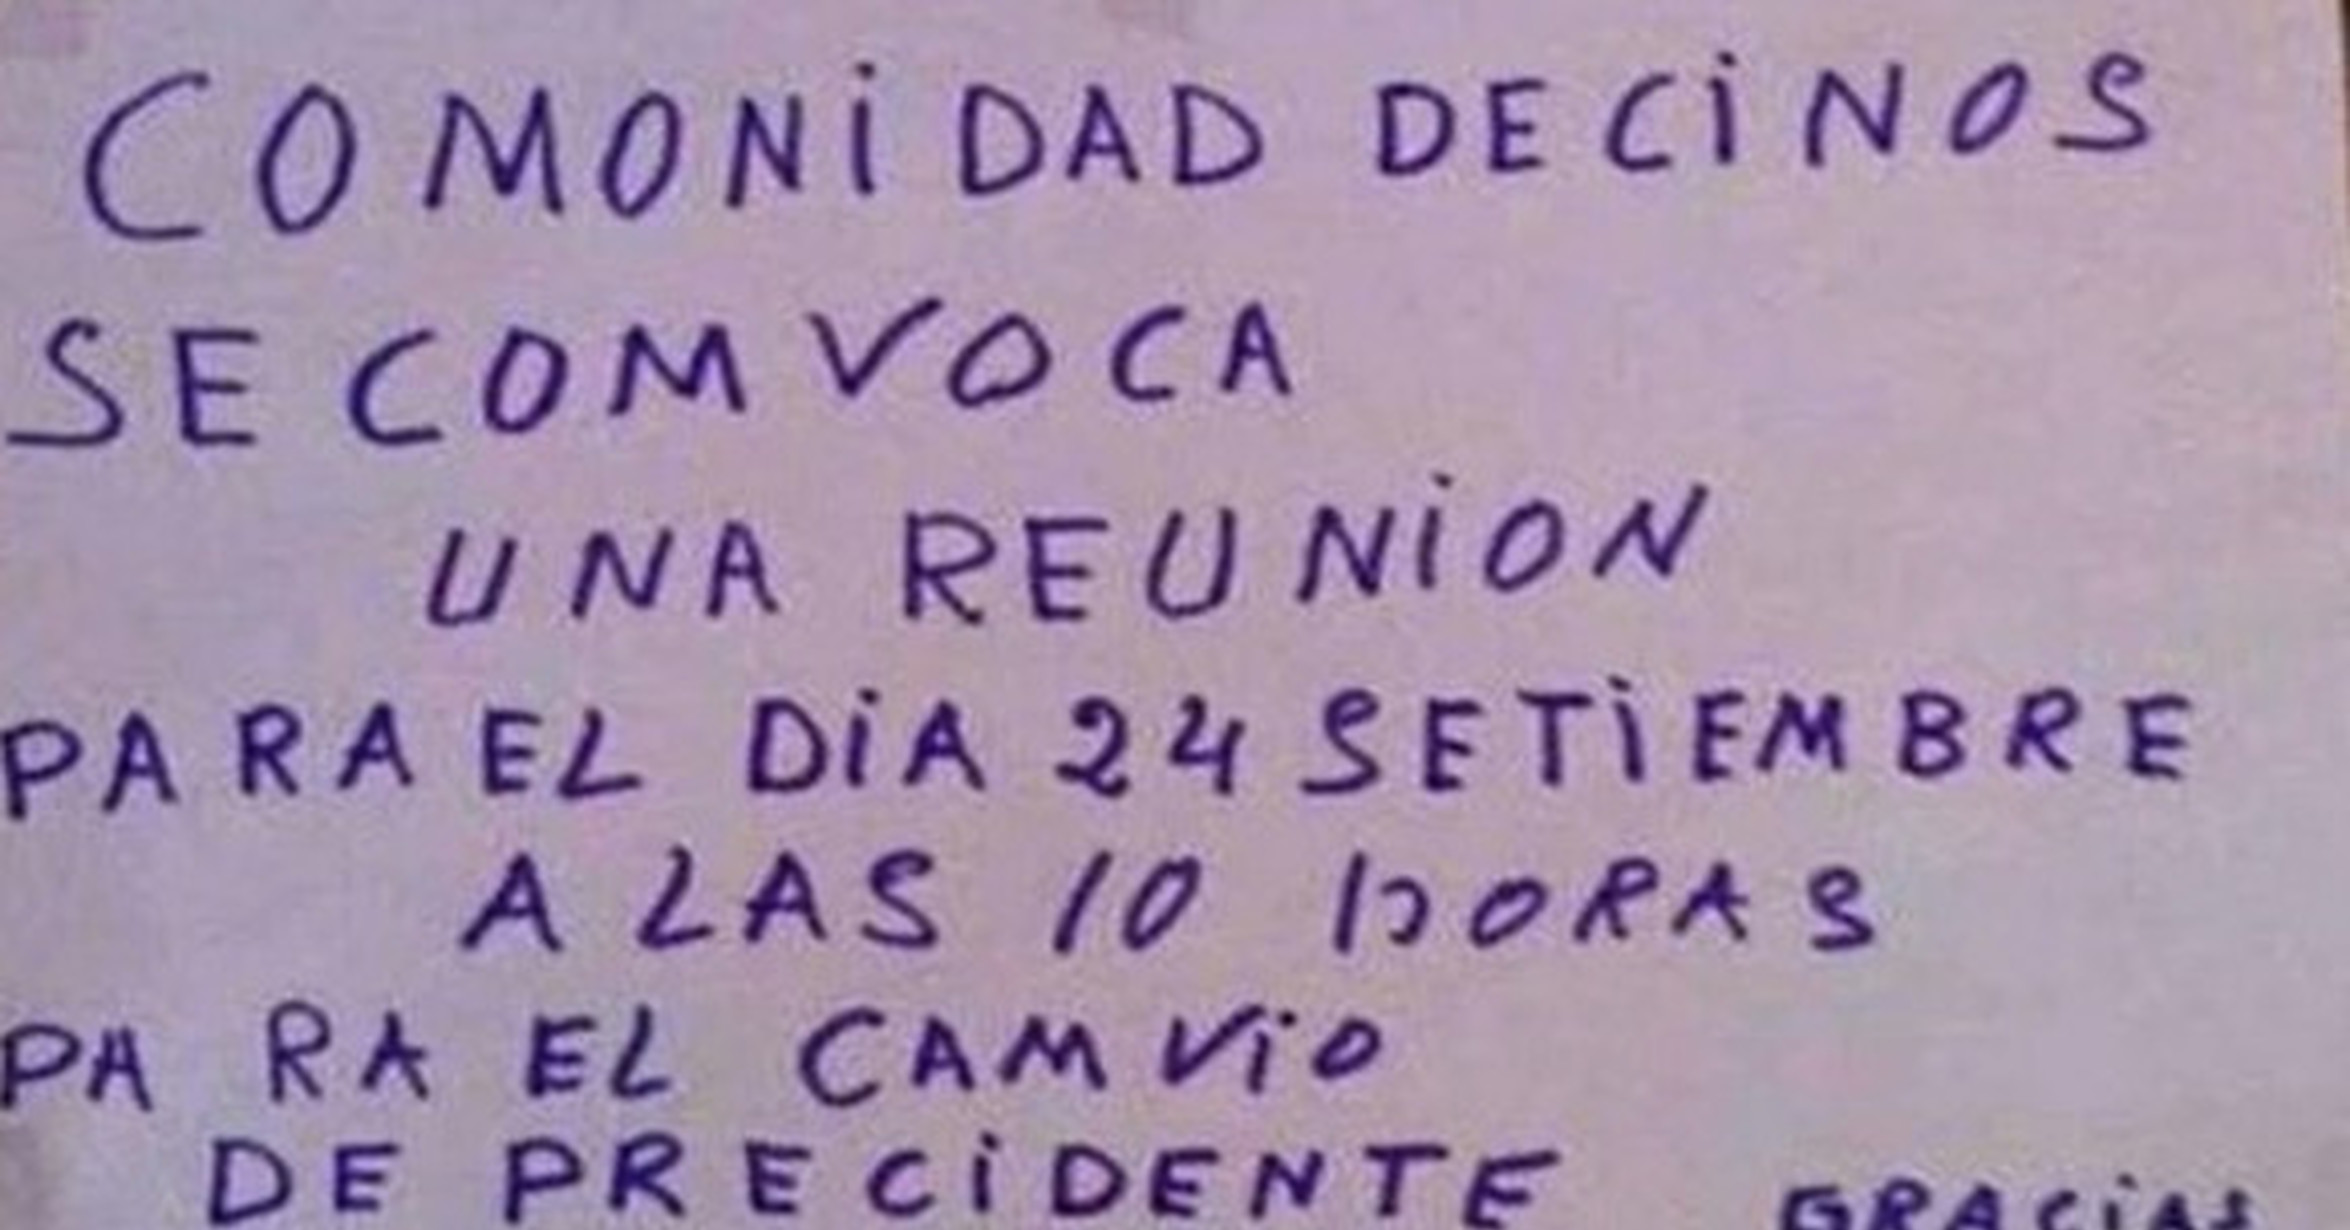 COMONiDAD DECiNOS
SE COMVOCA
UNA REUNiON
PARA EL DiA 24 SETiEMBRE
A LAS 10 hORAS
PA RA EL CAMViO
DE PRECiDENTE GRACiAS